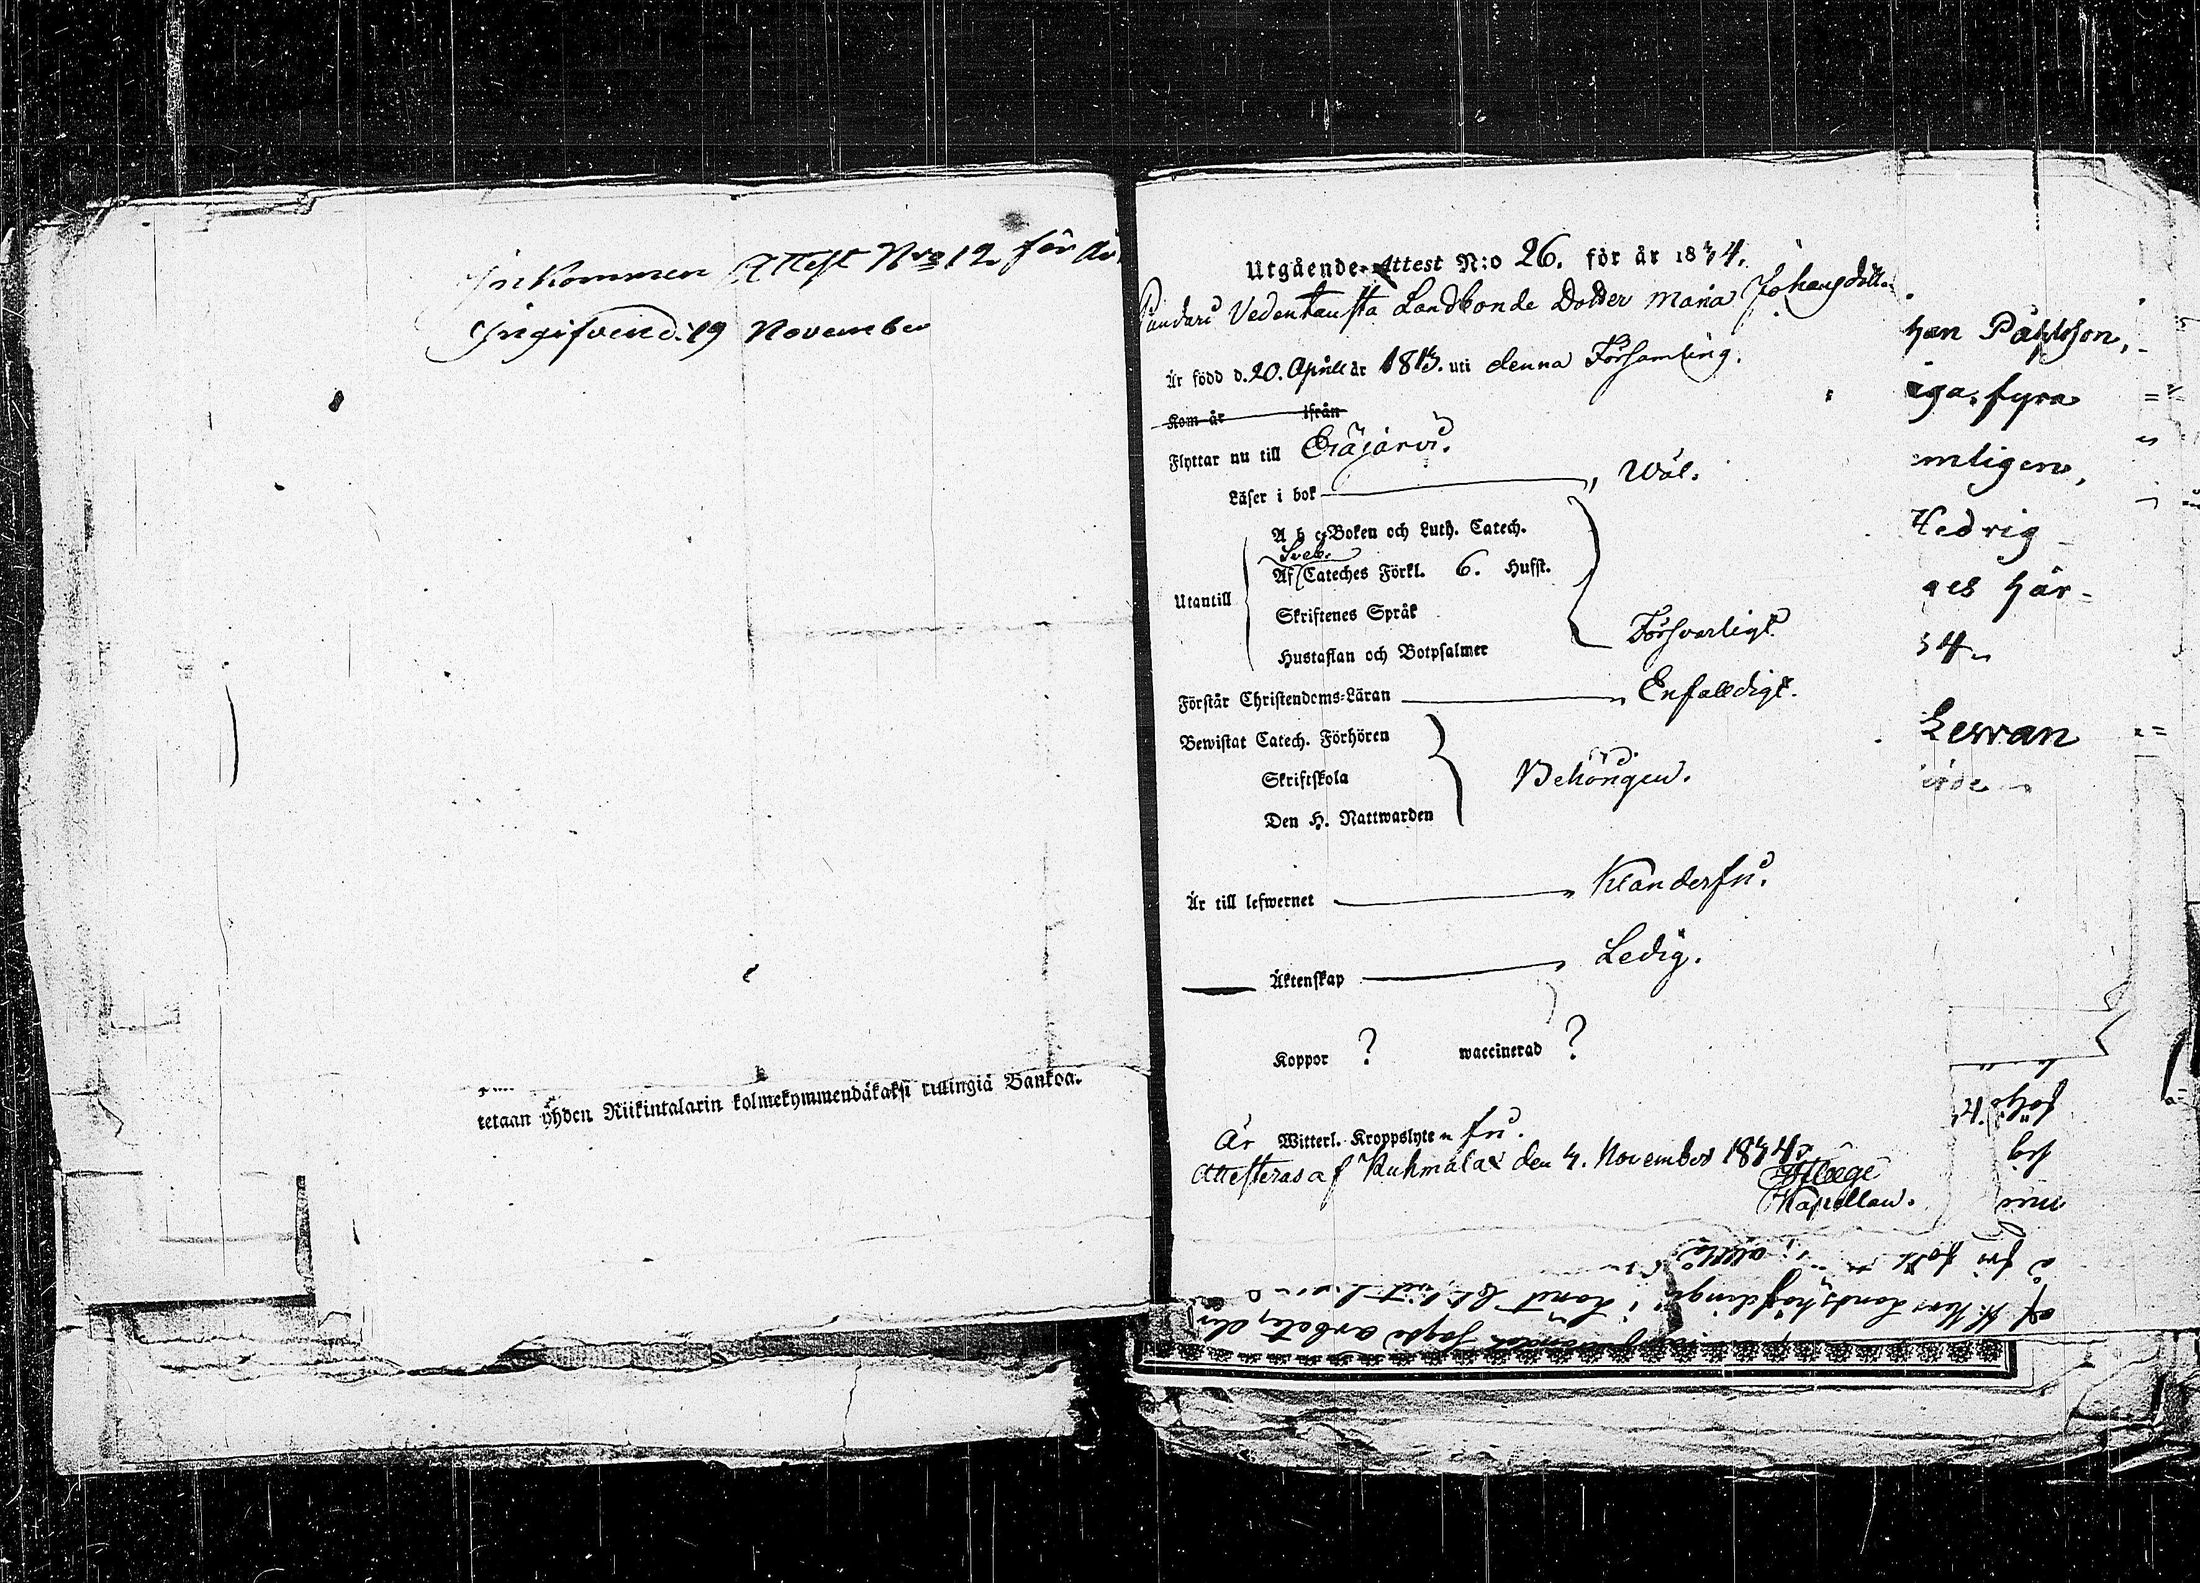 Inkommen Attest Nro 12 för år
Ingifven d. 19 November
tetaan yhden Riikintalarin kolmekymmendäkaksi killingiä Bankoa.
Utgående Attest N:o 26. för år 1834.
Vedentausta Landbonde Dotter Maria Johansdotter
Är född d. 20. Aprill år 1813. uti denna Församling.
Kom år ifrån
Flyttar nu till Eräjärvi.
Läser i bok Wäl.
A b c-Boken och Luth. Catech.
Sveb.
Af Cateches Förkl. 6. Hufst.
Utantill
Skriftenes Språk
Hustaflan och Botpsalmer Försvarligt
Förstår Christendoms-Läran Enfaldigt.
Bewistat Catech. Förhören
Skriftskola Behörigen.
Den H. Nattwarden
Är till lefwernet Klanderfri.
Äktenskap Ledig.
Koppor ? waccinerad ?
Är Witterl. Kroppslyte fri.
Attesteras af Kuhmalax den 4. November 1834.
Kapellan.
han Påhlsson,
iga, fyra
mligen,
Hedvig
ges här
34
Lewan